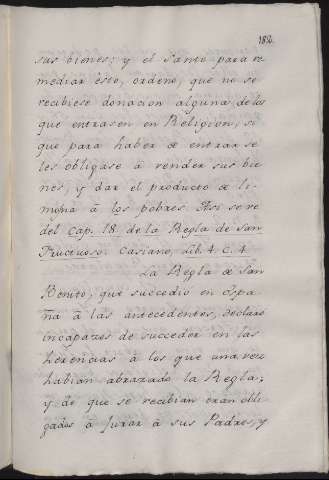 182.
sus bienes; y el Santo para re
mediar esto, ordeno, que no se
recibiese donacion alguna de los
que entrasen en Religion, si
que para haber de entrar se
les obligáse à vender sus bie
nes, y dar el producto de li-
mosna à los pobres. Asi se ve
del Cap. 18 de la Regla de San
Fructuoso. Casiano, Lib. 4. C. 4.
La Regla de San
Benito, que succedio en Espa
ña à las antecedentes, declara
incapazes de succeder en las
herencias à los que una vez
habian abrazado la Regla;
y de que se recibian eran obli
gados à Jurar à sus Padres, y